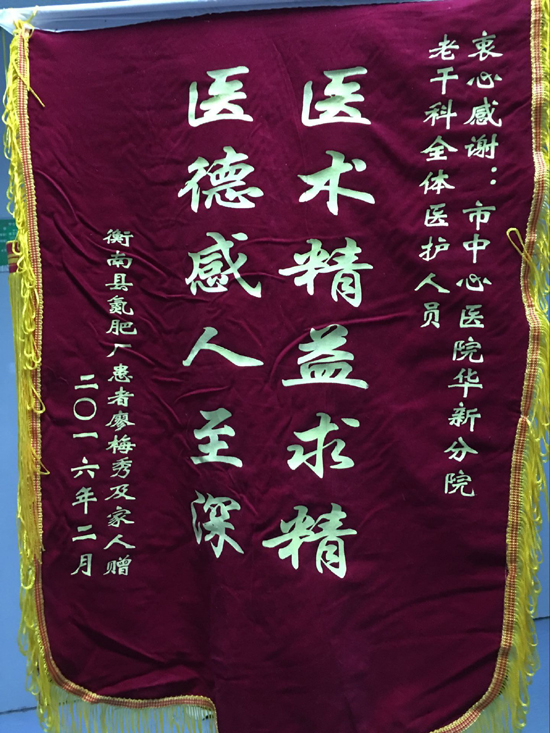 衷心感谢：市中心医院华新分院
老干科全体医护人员
医术精益求精
医德感人至深
衡南县氮肥厂患者廖梅秀及家人赠
二〇一六年二月